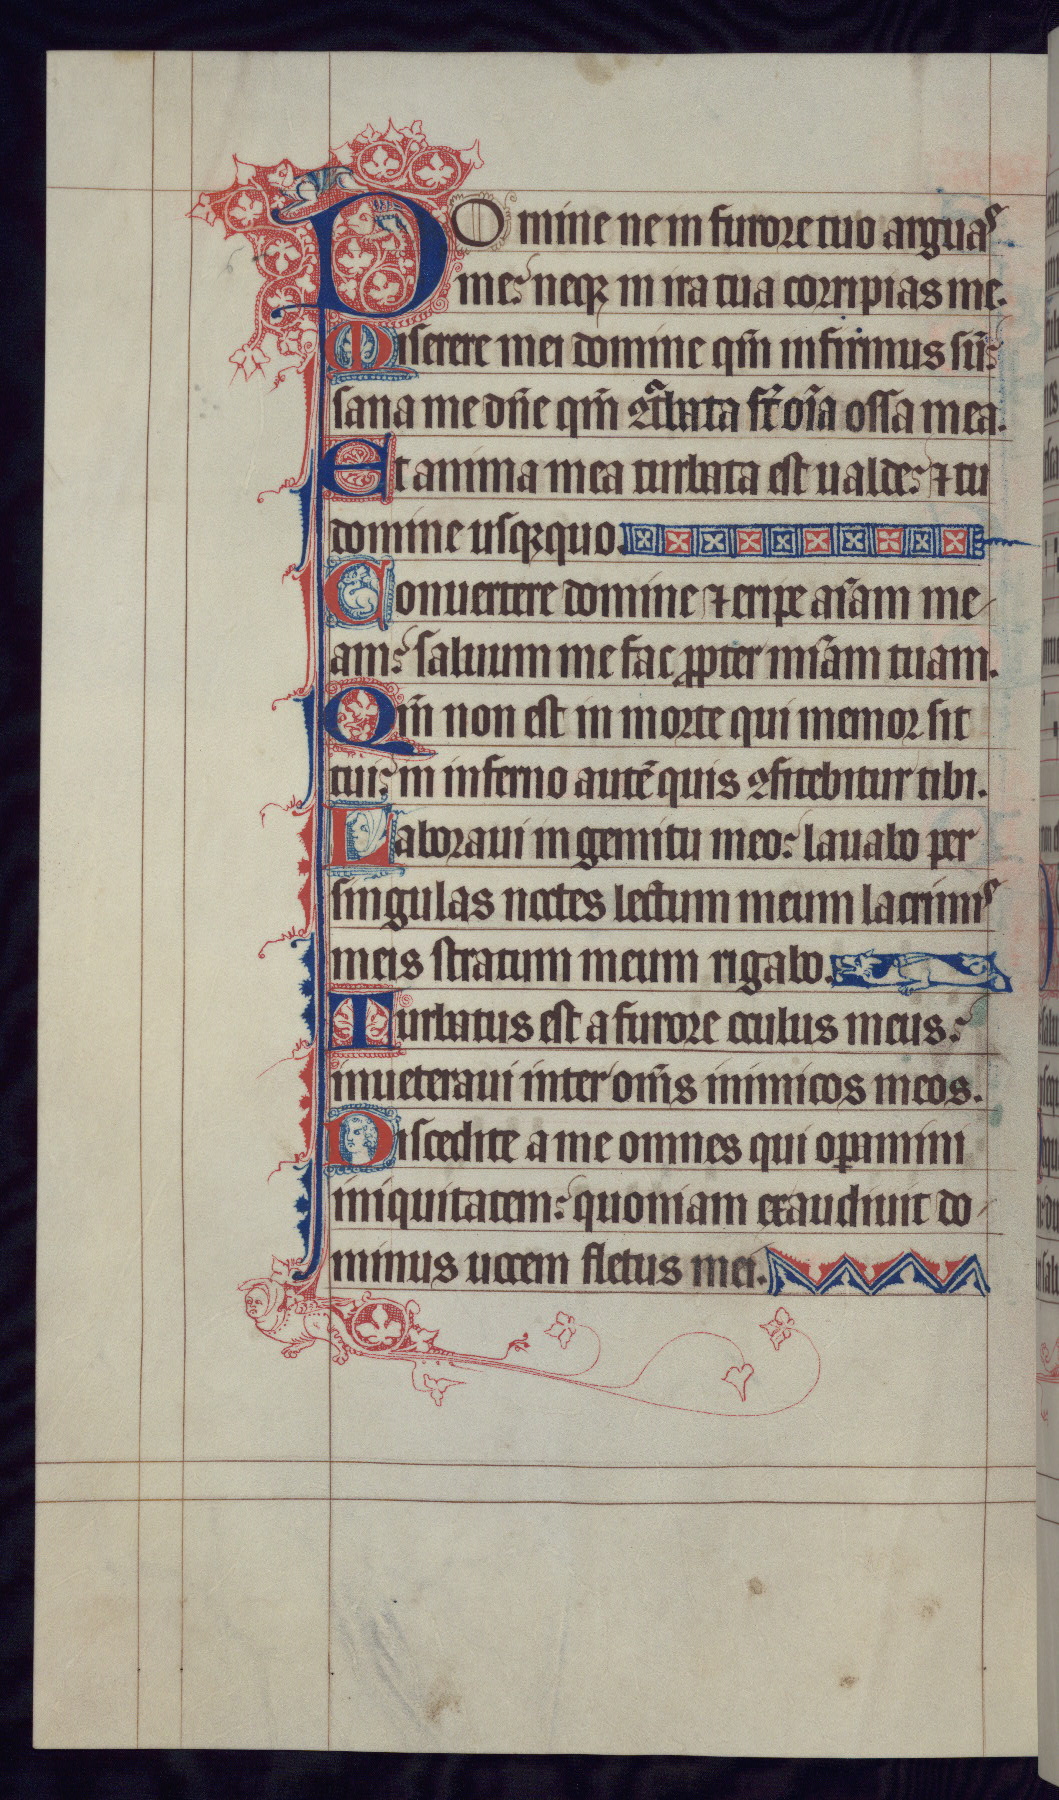 DOmine ne in furore tuo arguas
me: neq in ira tua corripias me.
Miserere mei domine qm̄ infirmus sū:
sana me dn̄e qm̄ ꝯt̾bata st̄ oīa ossa mea.
Et anima mea turbata est ualde: ⁊ tu
domine usqꝫquo.
Conuertere domine ⁊ eripe aīam me
am: saluum me fac ꝓpter mīam tuam.
Qm̄ non est in morte qui memor sit
tui: in inferno autē quis ꝯfitebitur tibi.
Laboraui in gemitu meo: lauabo per
singulas noctes lectum meum lacrimis
meis stratum meum rigabo.
Turbatus est a furore oculus meus:
inueteraui inter om̄s inimicos meos.
Discedite a me omnes qui oꝑamini
iniquitatem: quoniam exaudiuit do
minus uocem fletus mei.